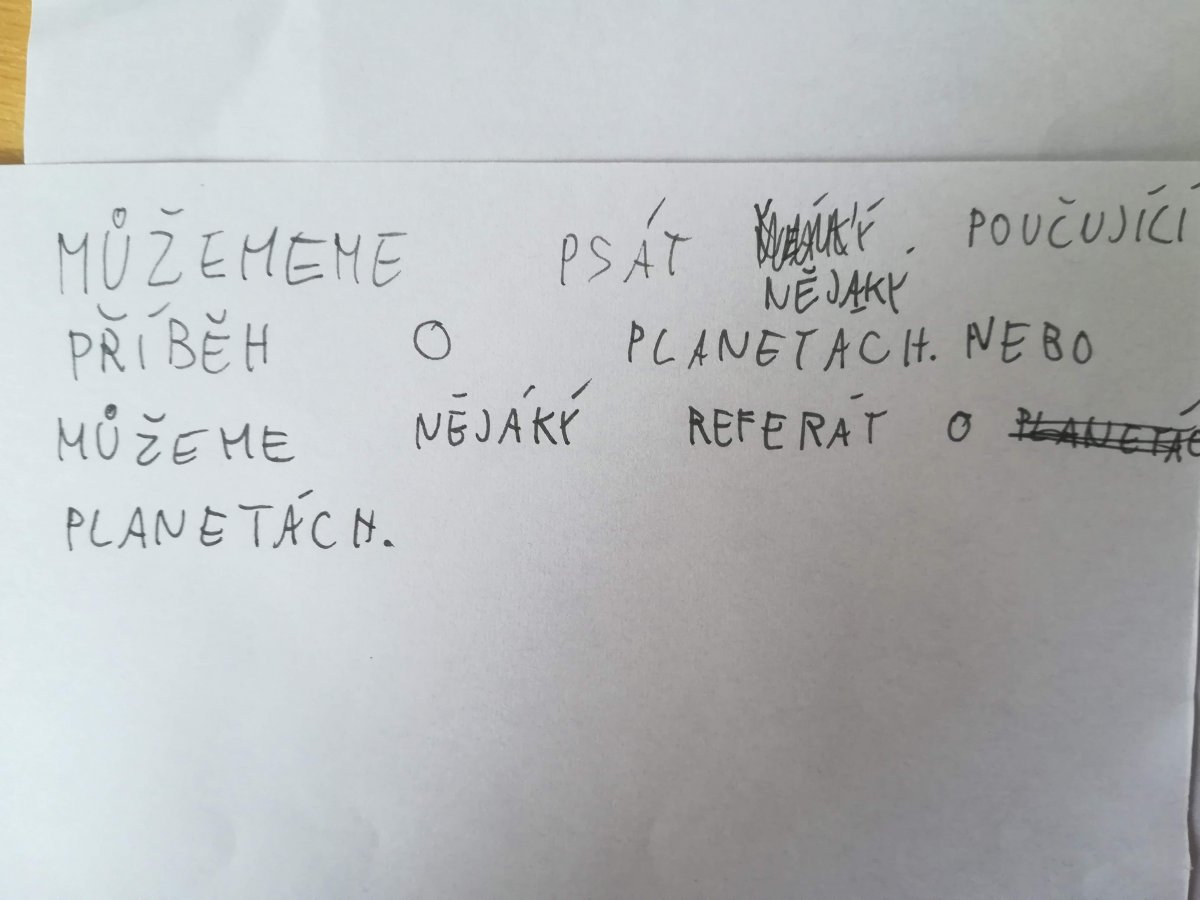 MŮŽEMEME PSÁT NĚJAKÝ POUČUJÍCÍ
PŘÍBĚH O PLANETACH. NEBO
MŮŽEME NĚJÁKÝ REFERÁT O
PLANETÁCH.